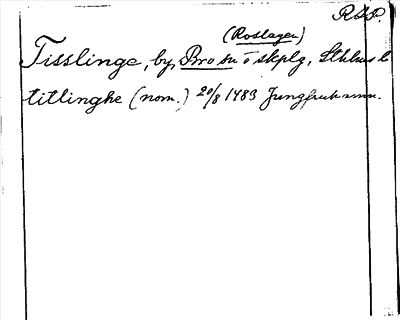 RAP.
(Roslagen)
Tisslinge, by, Bro sn o skplg, Sthlms l
titlinghe (nom.) 20/8 1483 Jungfrukamm.